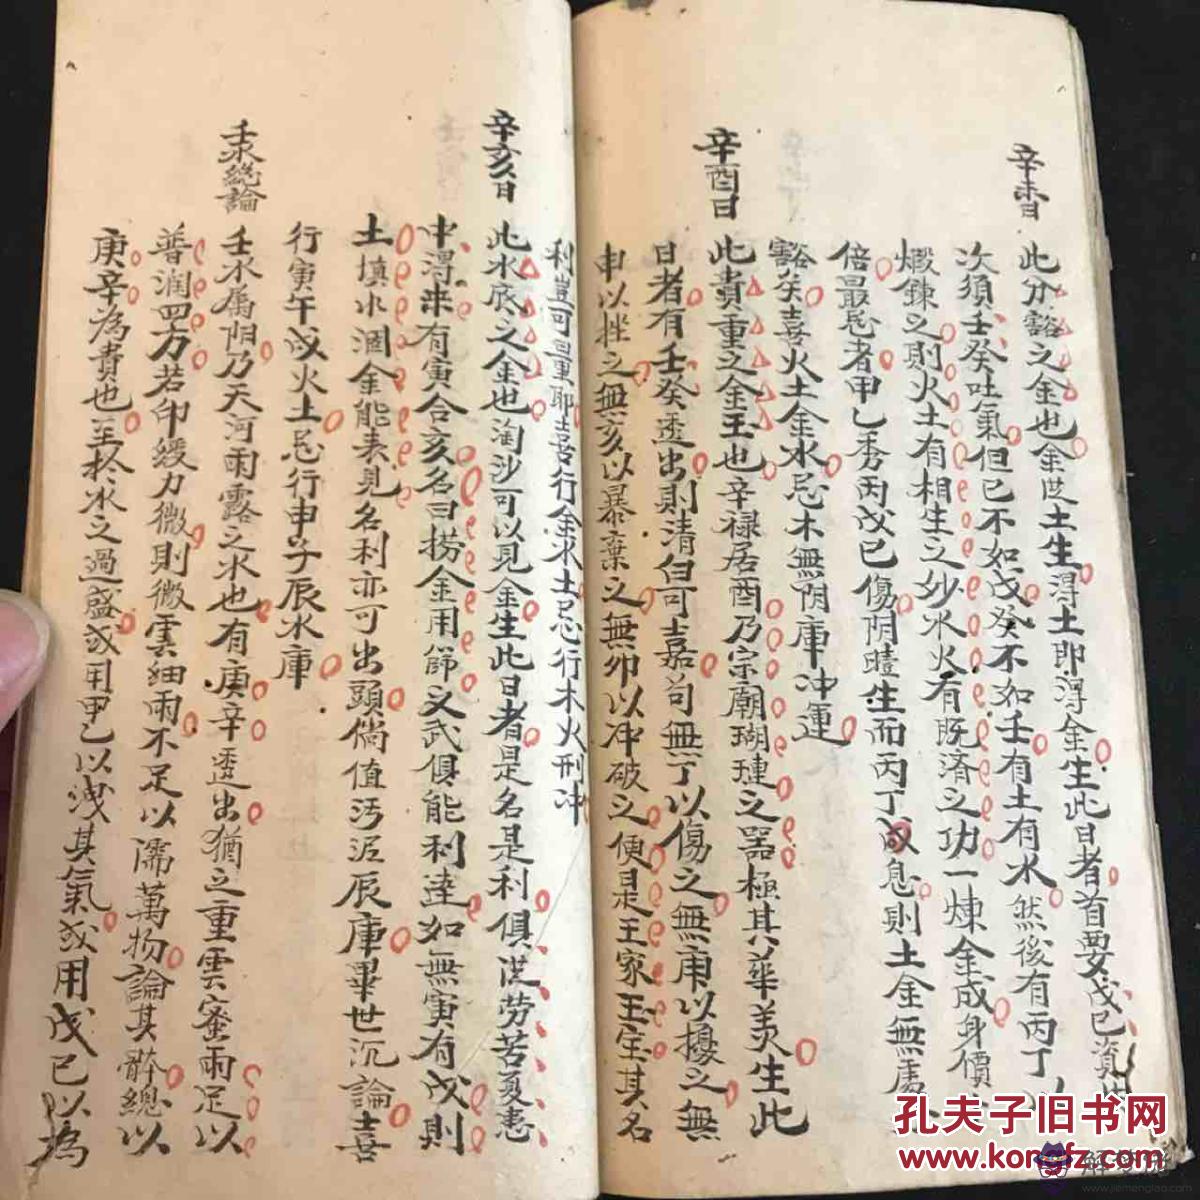 辛未日
此分谿之金也金從土生淂土即淂金生此日者首要戊己資生
次須壬癸吐氣但己不如戊癸不如壬有土有水然後有丙丁
煅鍊之則火土有相生之妙水火有既濟之功一煉金成身價
倍最忌者甲乙秀丙戊己傷阴晴生而丙丁滅息則土金無𠙚
谿矣喜火土金水忌木無阴庫冲運
辛酉日
此貴重之金玉也辛禄居酉乃宗廟瑚璉之噐極其華美生此
日者有壬癸透出則清白可嘉茍無丁以傷之無庚以擾之無
申以挫之無亥以暴棄之無卯以冲破之便是王家玉宝其名
利豈可量耶喜行金水土忌行木火刑冲
辛亥日
此水底之金也淘沙可以見金生此日者是名是利俱從劳苦憂患
中淂来有寅合亥名曰捞金用篩文武俱能利達如無寅有戌則
土填水涸金能表見名利亦可出頭倘值污泥辰庫畢世沉論喜
行寅午戌火土忌行申子辰水庫
壬水総論
壬水属阳乃天河雨露之水也有庚辛透出猶之重雲蜜雨足以
普润四方若印緩力微則微雲細雨不足以濡萬物論其骵縂以
庚辛為貴也至扵水之過盛或用甲乙以洩其氣或用戊己以為
孔夫子旧书网
www.kongfz.com
解梦佬
www.jiemenglao.com